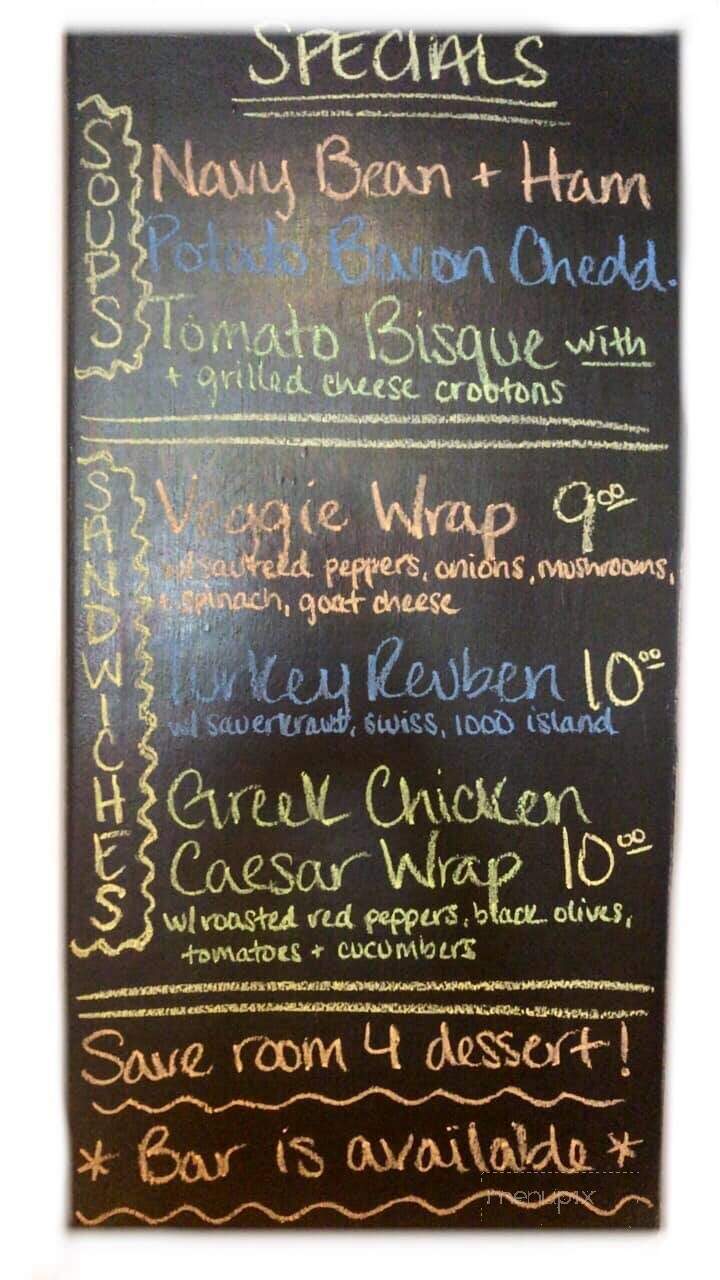 SPECIALS
SOUPS
Navy Bean + Ham
Potato Bacon Chedd.
Tomato Bisque with
+ grilled cheese crootons
SANDWICHES
Veggie Wrap 9.00
w/sauteed peppers, onions, mushrooms,
+ spinach, goat cheese
Turkey Reuben 10.00
w/ sauerkraut, swiss, 1000 island
Greek Chicken
Caesar Wrap 10.00
w/roasted red peppers, black olives,
tomatoes + cucumbers
Save room 4 dessert!
* Bar is available *
menupix